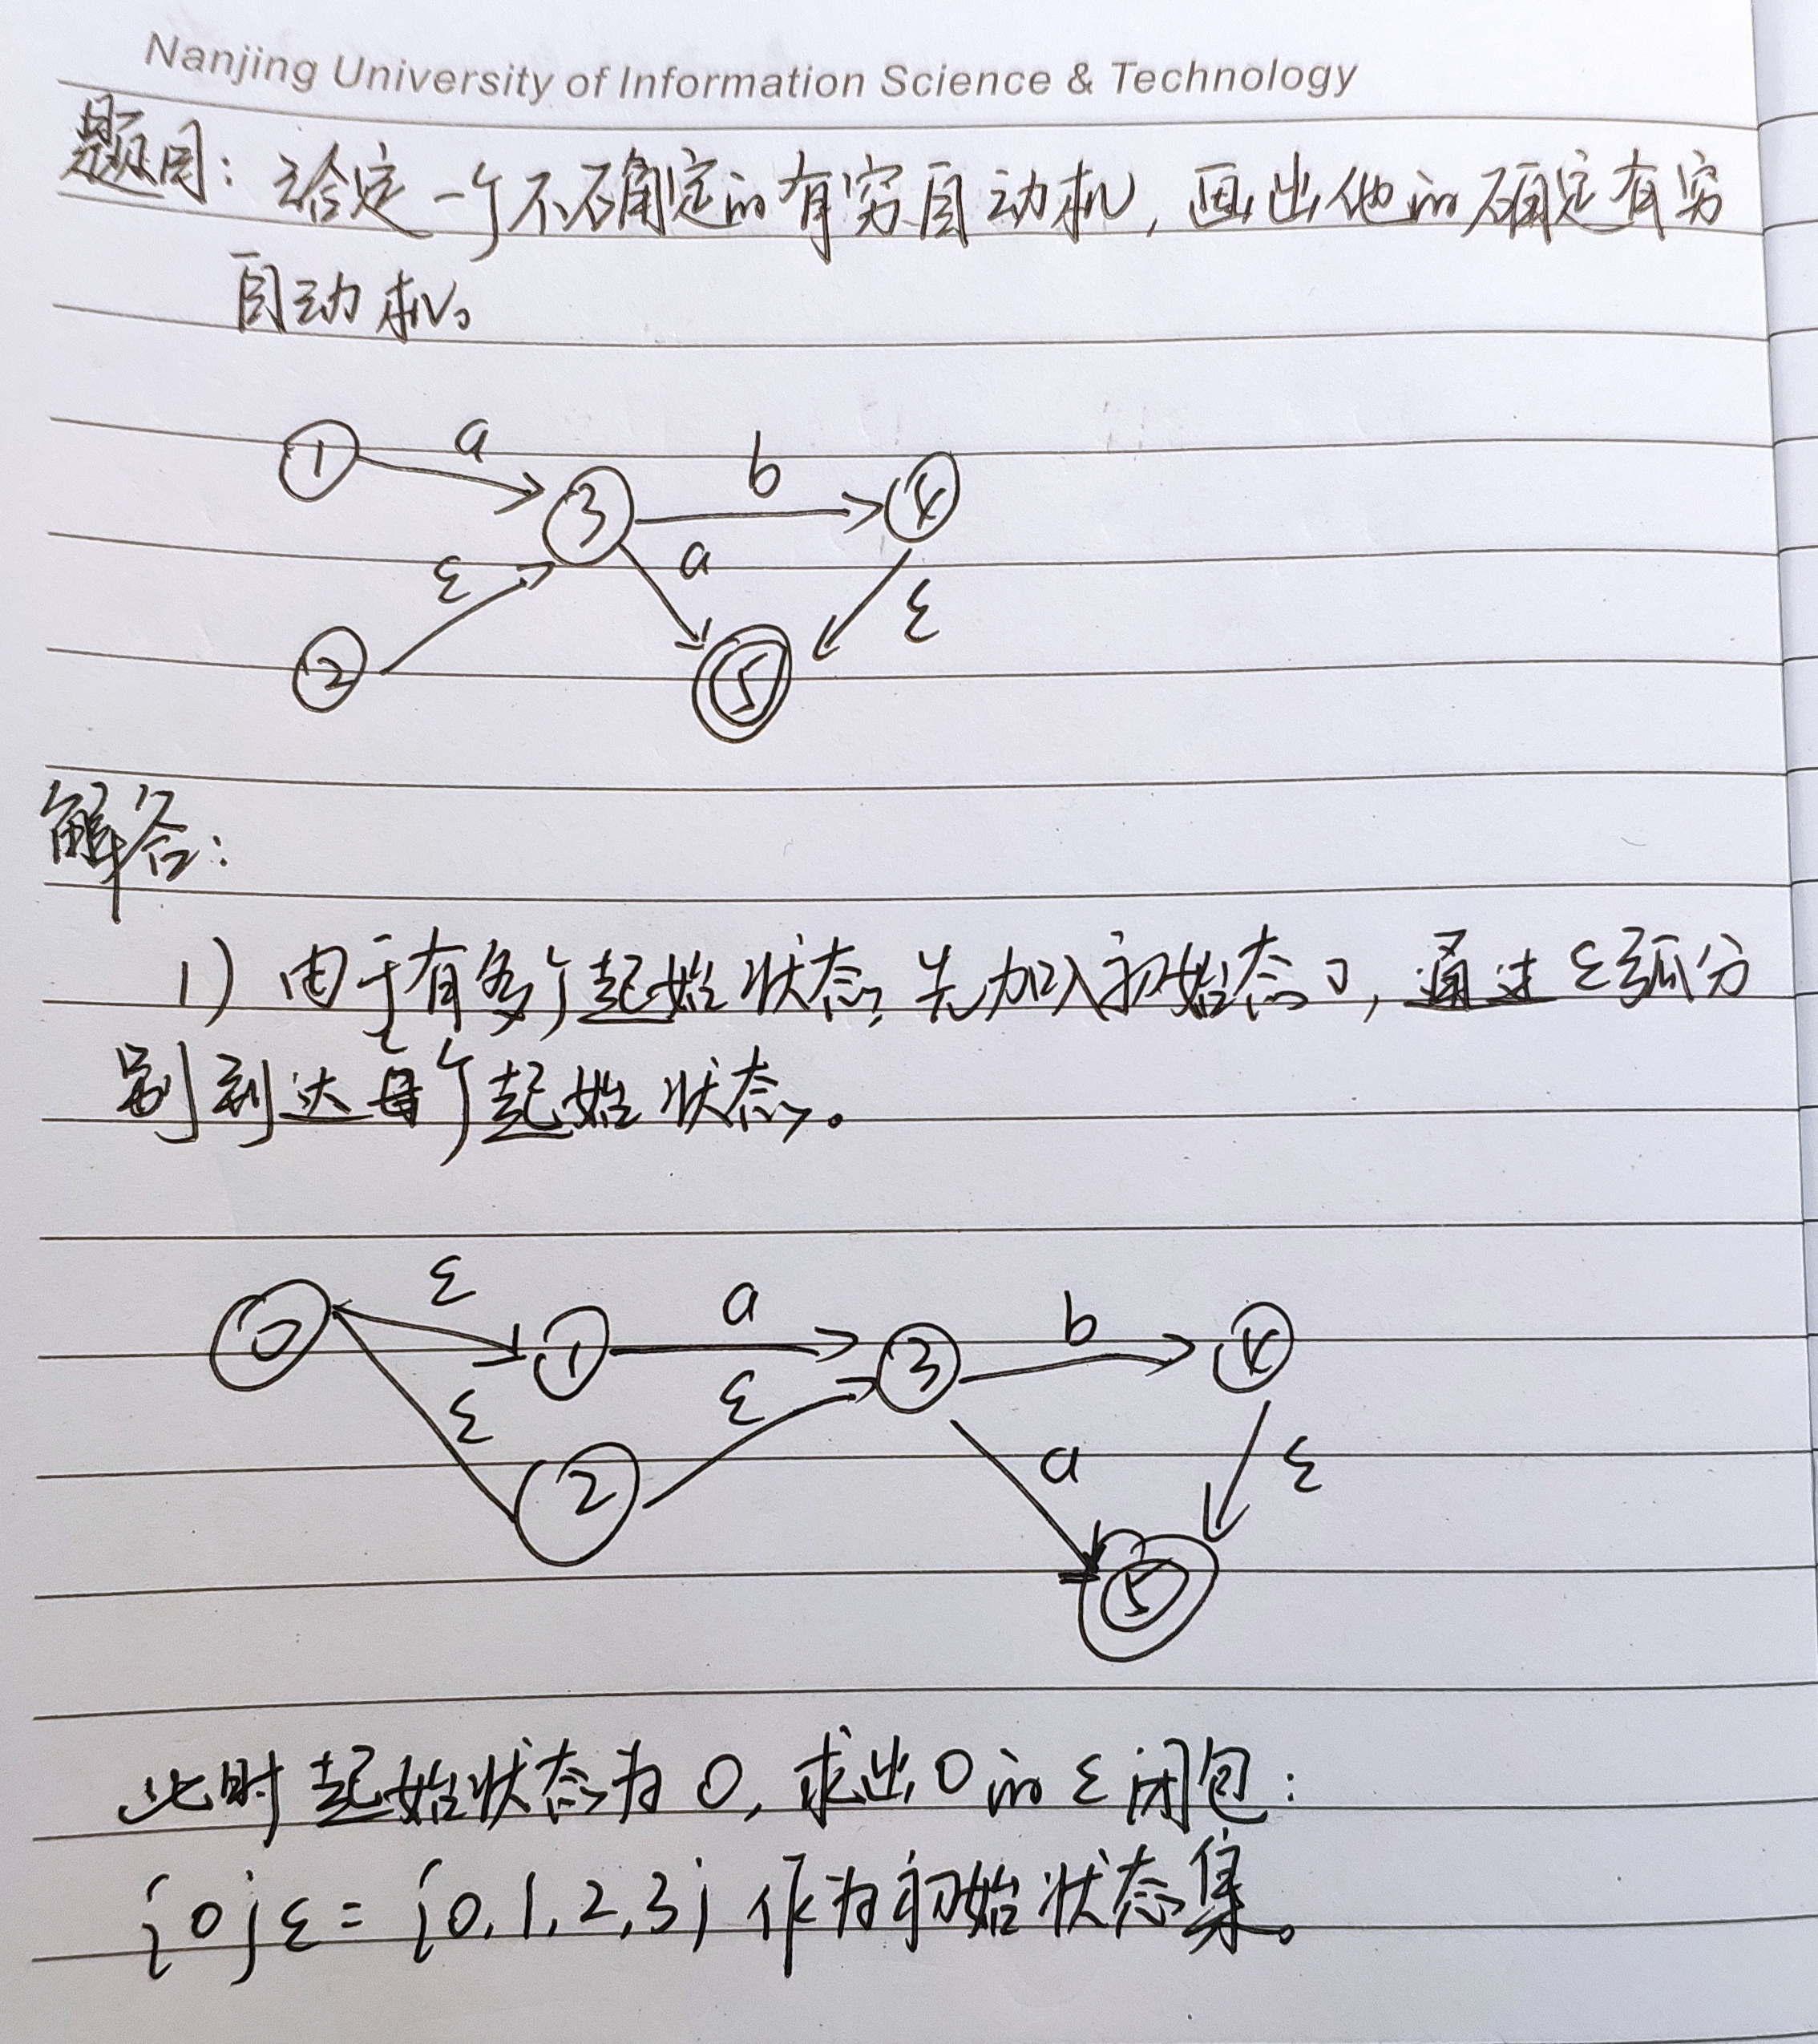 Nanjing University of Information Science & Technology
题目：给定一个不确定的有穷自动机，画出他的确定有穷
自动机。
1 a 3 b 4
ε a ε
2 5
解答：
1) 由于有多个起始状态，先加入初始态0，通过ε弧分
别到达每个起始状态。
0 ε 1 a 3 b 4
ε 2 ε a ε
5
此时起始状态为0，求出0的ε闭包：
{0}ε={0,1,2,3}作为初始状态集。